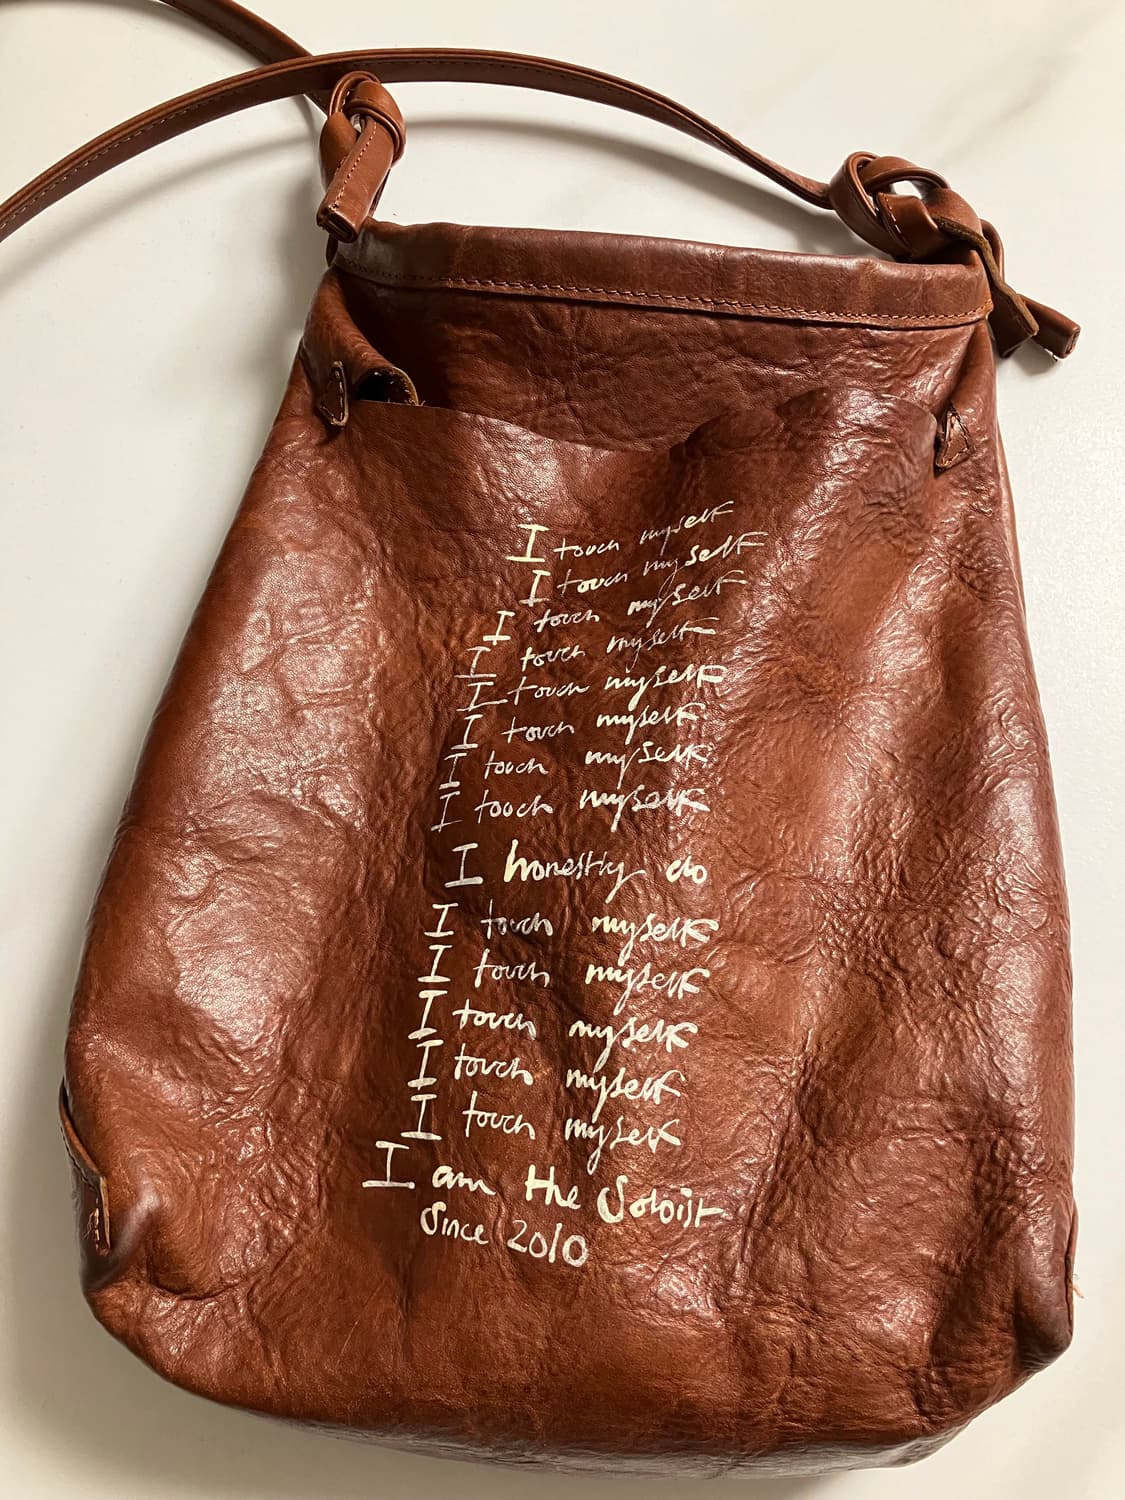 I touch myself
I touch myself
I touch myself
I touch myself
I touch myself
I touch myself
I touch myself
I touch myself
I honestly do
I touch myself
I touch myself
I touch myself
I touch myself
I touch myself
I am the Soloist
Since 2010